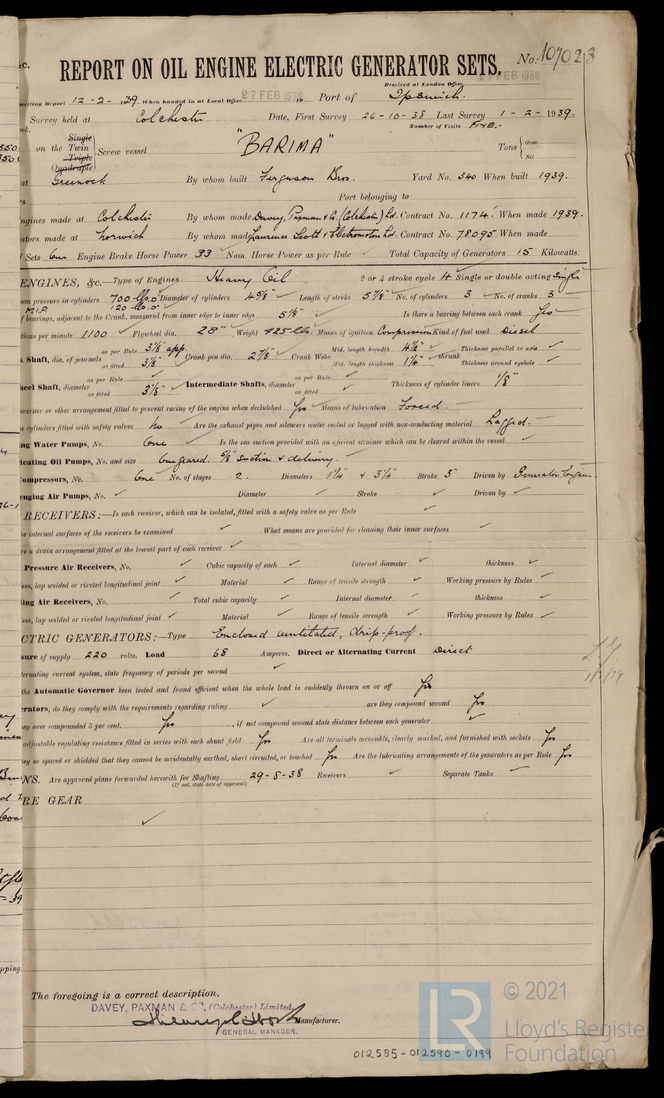 REPORT ON OIL ENGINE ELECTRIC GENERATOR SETS. No. 107023
Received at London Office FEB 1939
writing Report 12-2-1939. When handed in at Local Office 27 FEB 1939 Port of Ipswich.
Survey held at Colchester Date, First Survey 26-10-38 Last Survey 1-2-1939.
Number of Visits Five.
on the Single Twin Triple Quadruple Screw vessel "BARIMA" Tons Gross Net
at Greenock By whom built Ferguson Bros. Yard No. 340 When built 1939.
Port belonging to
ngines made at Colchester By whom made Davey, Paxman & Co. (Colchester) Ltd. Contract No. 1174. When made 1939.
ators made at Norwich By whom made Laurence Scott & Electromotors Ltd. Contract No. 78095 When made
Sets One Engine Brake Horse Power 33 Nom. Horse Power as per Rule Total Capacity of Generators 15 Kilowatts.
ENGINES, &c. Type of Engines Heavy Oil 2 or 4 stroke cycle 4 Single or double acting Single
um pressure in cylinders 700 lbs □" Diameter of cylinders 4 5/8" Length of stroke 5 7/8" No. of cylinders 3 No. of cranks 3
M.I.P. 120 lbs □"
f bearings, adjacent to the Crank, measured from inner edge to inner edge 5 1/8" Is there a bearing between each crank Yes
tions per minute 1100 Flywheel dia. 28" Weight 425 lbs. Means of ignition Compression Kind of fuel used Diesel
Shaft, dia. of journals as per Rule 3 1/8" app. as fitted 3 1/8" Crank pin dia. 2 7/8" Crank Webs Mid. length breadth 4 1/2" Mid. length thickness 1 1/4" shrunk Thickness parallel to axis Thickness around eyehole
heel Shaft, diameter as per Rule as fitted 3 1/8" Intermediate Shafts, diameter as per Rule as fitted Thickness of cylinder liners 1/8"
overnor or other arrangement fitted to prevent racing of the engine when declutched Yes Means of lubrication Forced.
e cylinders fitted with safety valves No Are the exhaust pipes and silencers water cooled or lagged with non-conducting material Lagged.
ng Water Pumps, No. One Is the sea suction provided with an efficient strainer which can be cleared within the vessel
icating Oil Pumps, No. and size One geared. 5/8" suction & delivery.
ompressors, No. One No. of stages 2. Diameters 1 1/4 & 3 1/4 Stroke 3" Driven by Generator Engine.
enging Air Pumps, No. Diameter Stroke Driven by
RECEIVERS:—Is each receiver, which can be isolated, fitted with a safety valve as per Rule
e internal surfaces of the receivers be examined What means are provided for cleaning their inner surfaces
e a drain arrangement fitted at the lowest part of each receiver
Pressure Air Receivers, No. Cubic capacity of each Internal diameter thickness
ess, lap welded or riveted longitudinal joint Material Range of tensile strength Working pressure by Rules
ing Air Receivers, No. Total cubic capacity Internal diameter thickness
ess, lap welded or riveted longitudinal joint Material Range of tensile strength Working pressure by Rules
CTRIC GENERATORS:—Type Enclosed ventilated, drip-proof.
sure of supply 220 volts. Load 68 Amperes. Direct or Alternating Current Direct
ternating current system, state frequency of periods per second
the Automatic Governor been tested and found efficient when the whole load is suddenly thrown on or off Yes
rators, do they comply with the requirements regarding rating are they compound wound Yes
ey over compounded 5 per cent. Yes , if not compound wound state distance between each generator
adjustable regulating resistance fitted in series with each shunt field Yes Are all terminals accessible, clearly marked, and furnished with sockets Yes
ey so spaced or shielded that they cannot be accidentally earthed, short circuited, or touched Yes Are the lubricating arrangements of the generators as per Rule Yes
NS. Are approved plans forwarded herewith for Shafting 29-8-38 Receivers Separate Tanks
(If not, state date of approval)
RE GEAR
The foregoing is a correct description,
DAVEY, PAXMAN & CO. (Colchester) Limited,
Manufacturer.
GENERAL MANAGER.
012585-012590-0199
LR
© 2021
Lloyd's Register
Foundation